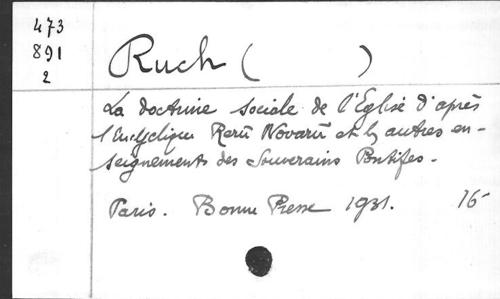 473
891
2
Ruch ( )
La doctrine sociale de l'Eglise d'après
l'Encyclique Rerū Novarū et les autres en-
seignements des Souverains Pontifes.
Paris. Bonne Presse 1931. 16-